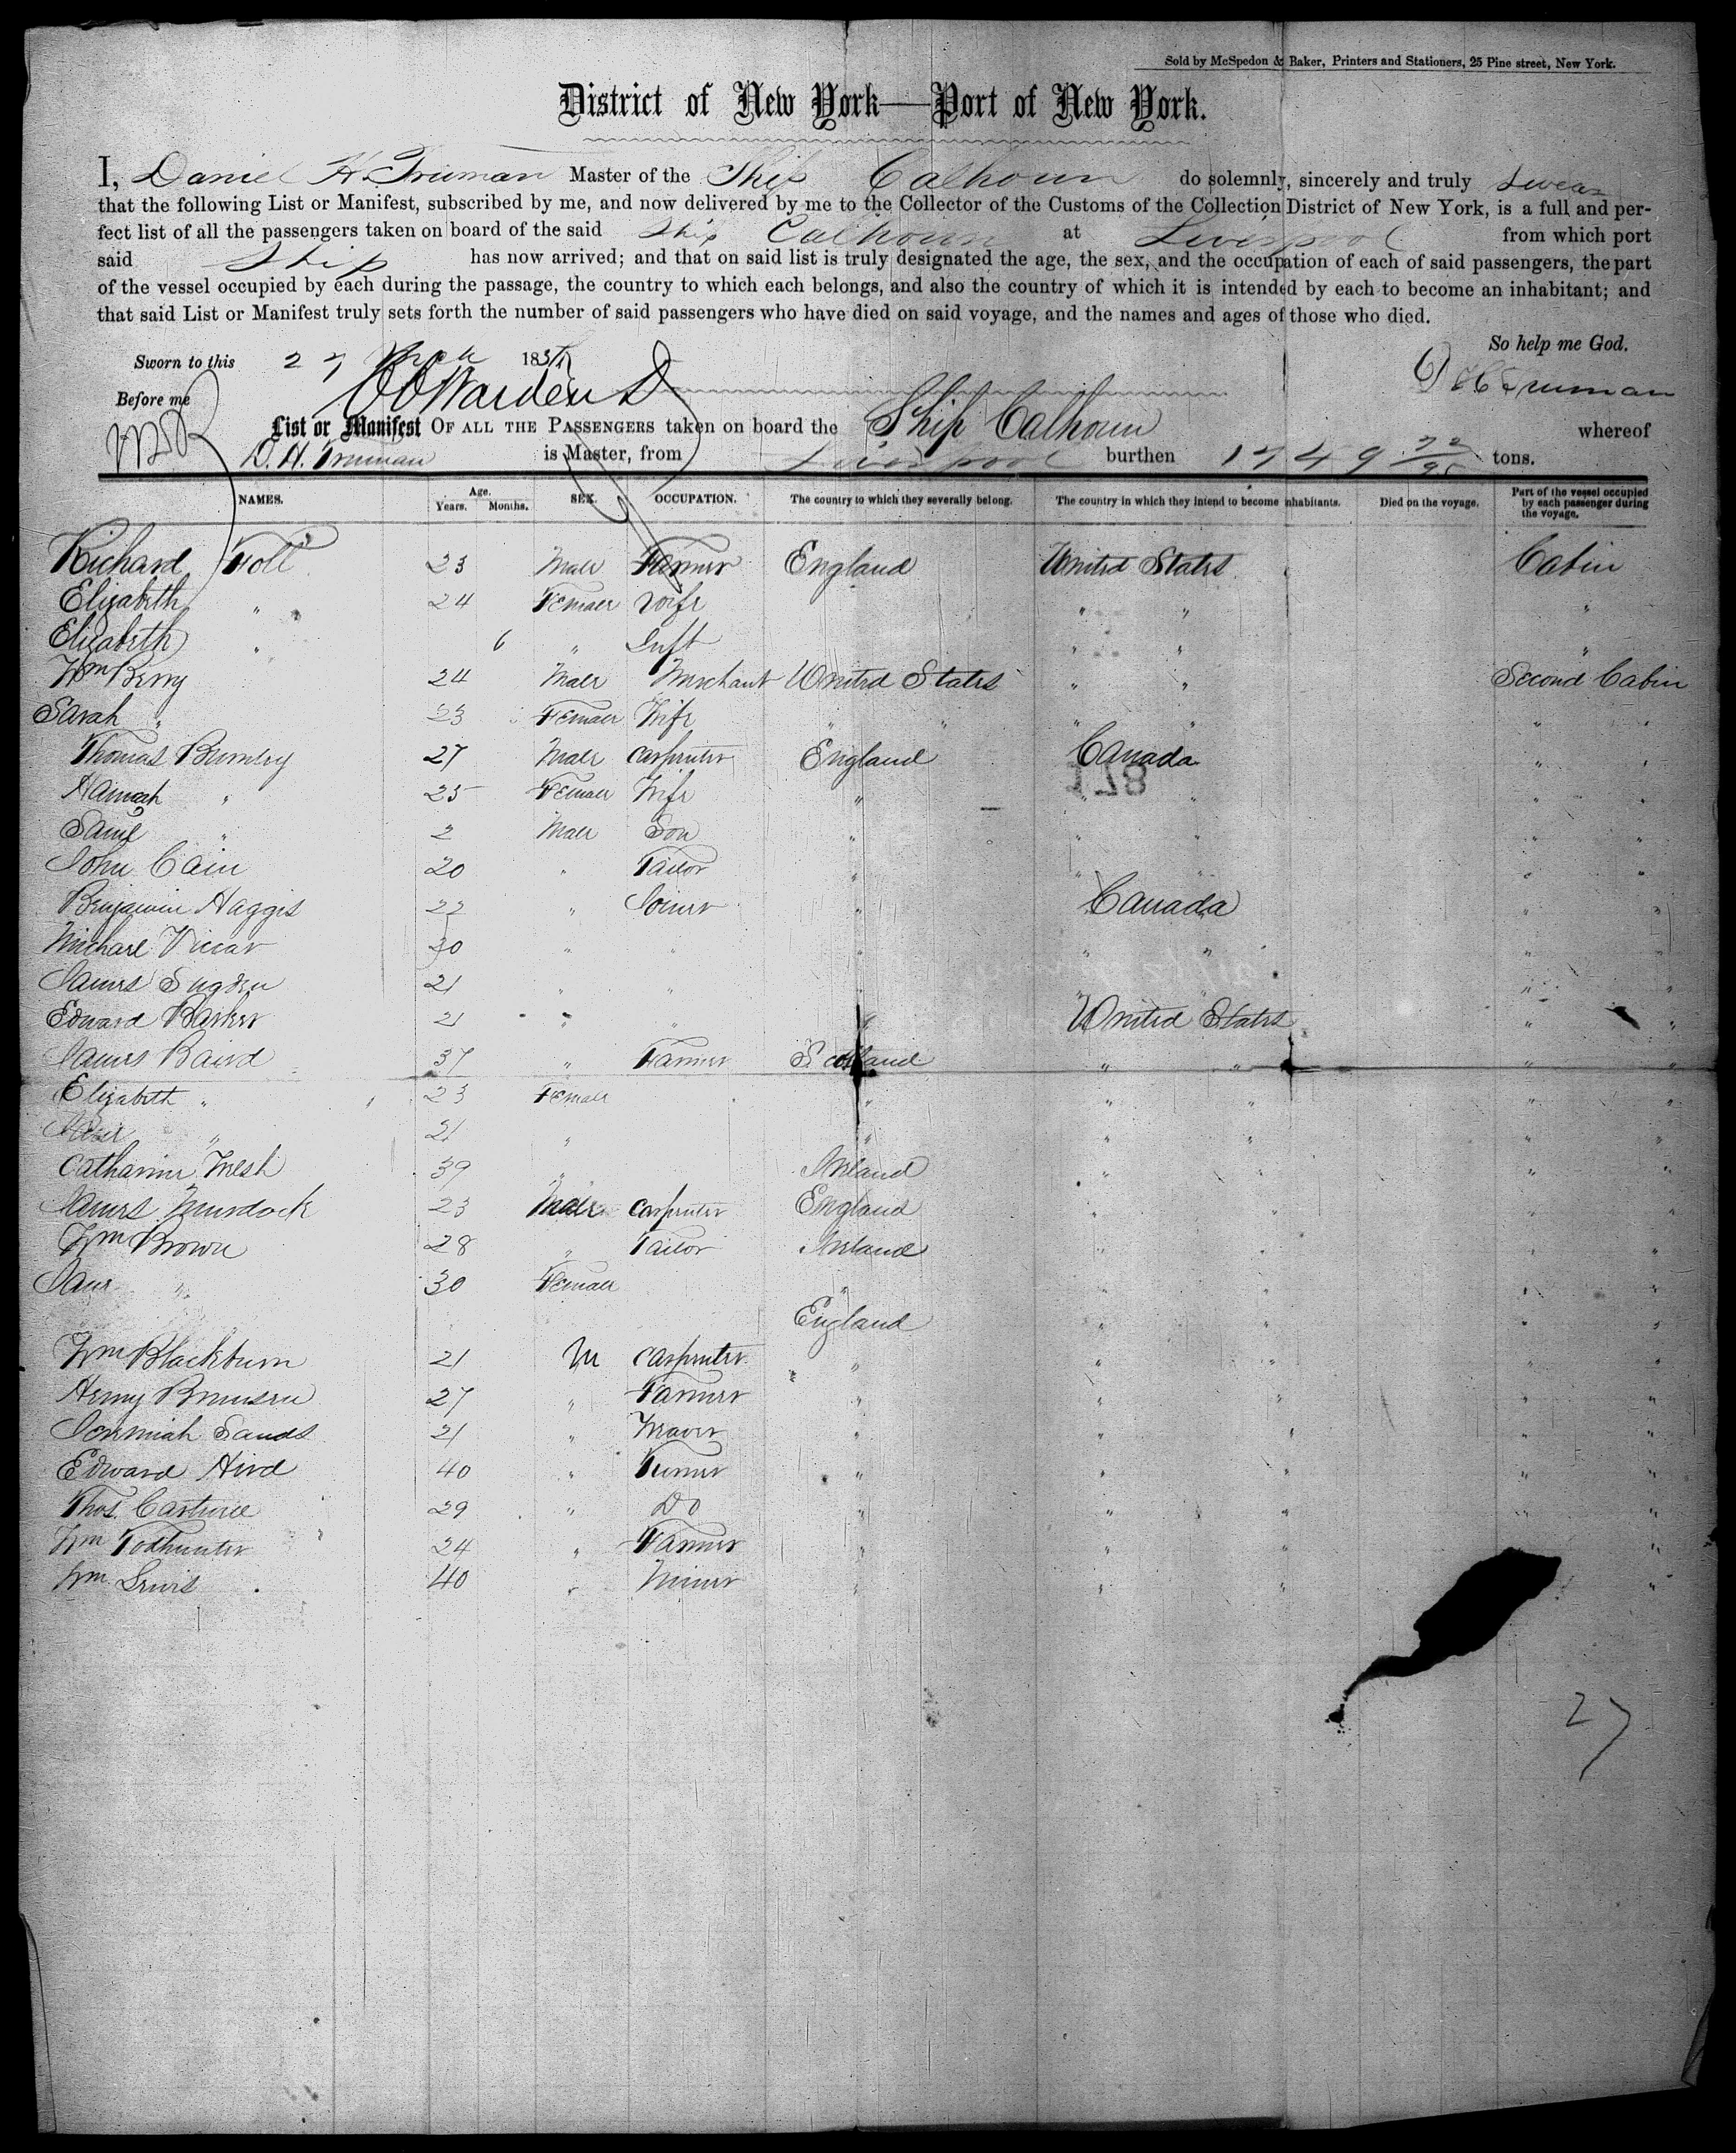 Sold by McSpedon & Baker, Printers and Stationers, 25 Pine street, New York.
District of New York—Port of New York.
I, Daniel H. Truman Master of the Ship Calhoun do solemnly, sincerely and truly swear
that the following List or Manifest, subscribed by me, and now delivered by me to the Collector of the Customs of the Collection District of New York, is a full and per-
fect list of all the passengers taken on board of the said Ship Calhoun at Liverpool from which port
said Ship has now arrived; and that on said list is truly designated the age, the sex, and the occupation of each of said passengers, the part
of the vessel occupied by each during the passage, the country to which each belongs, and also the country of which it is intended by each to become an inhabitant; and
that said List or Manifest truly sets forth the number of said passengers who have died on said voyage, and the names and ages of those who died.
So help me God.
Sworn to this 27 185
D H Truman
Before me
List or Manifest OF ALL THE PASSENGERS taken on board the Ship Calhoun whereof
D. H. Truman is Master, from Liverpool burthen 1749 72/95 tons.
NAMES. Age. Years. Months. SEX. OCCUPATION. The country to which they severally belong. The country in which they intend to become inhabitants. Died on the voyage. Part of the vessel occupied by each passenger during the voyage.
Richard 23 Male Farmer England United States Cabin
Elizabeth " 24 Female Wife " " "
Elizabeth " 6 " Inft " " "
Wm Berry 24 Male Merchant United States " " Second Cabin
Sarah " 23 Female Wife " " " " " "
Thomas 27 Male Carpenter England Canada " "
178
Hannah " 25 Female Wife " " " " "
Saml " 2 Male Son " " " " "
John Cain 20 " Tailor " " " " "
Benjamin Haggis 22 " Joiner " Canada " "
Michael Vicar 30 " " " " " " "
James Sugden 21 " " " " " " "
Edward Barker 21 " " " United States " "
James Baird 37 " Farmer Scotland " " " "
Elizabeth " 23 Female " " " " "
" 21 " " " " " "
Catharine 39 " Ireland " " "
James Murdock 23 Male Carpenter England " " " "
Wm Brown 28 " Tailor Ireland " " " "
Jane " 30 Female " " " " "
England " " " "
Wm Blackburn 21 M Carpenter " " " " "
Henry 27 " Farmer " " " " "
Jeremiah Sands 21 " Weaver " " " " "
Edward Hird 40 " Turner " " " " "
Thos. 29 " Do " " " " "
Wm Todhunter 24 " Farmer " " " " "
Wm. Lewis 40 " Miner " " " " "
27